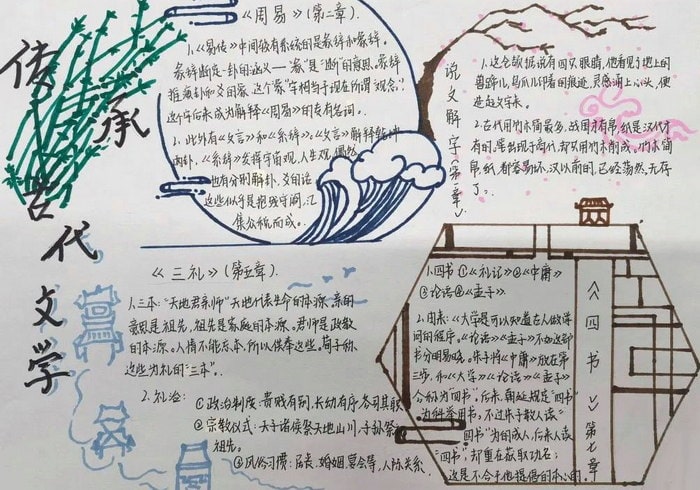 传承
古代文学
《周易》(第二章).
1.《易传》中间较有系统的是彖辞和象辞.
彖辞断定一卦的涵义—“彖”是“断”的意思.象辞
推演卦和爻的象.这个“象”字相当于现在所谓“观念”.
这个字后来成为解释《周易》的专有名词.
2.此外有《文言》和《系辞》.《文言》解释乾坤
两卦.《系辞》发挥宇宙观,人生观,偶然
也有分别解卦、爻的话
这些似乎是抱残守阙,汇
集众说而成.
说文解字(第一章)
1.这仓颉据说有四只眼睛,他看见了地上的
兽蹄儿,鸟爪儿印着的痕迹,灵感涌上心头,便
造起文字来.
2.古代用竹木简最多,战国才有帛,纸是汉代才
有的,笔出现于商代,却只用竹木削成.竹木简
帛,纸,都容易坏,汉以前的,已经荡然无存
了.
《三礼》(第五章).
1.三本:“天地君亲师”天地代表生命的本源,亲的
意思是祖先,祖先是家庭的本源.君师是政教
的本源.人情不能忘本,所以供奉这些.荀子称
这些为礼的“三本”.
2.礼治:①政治制度:贵贱有别,长幼有序,各司其职
②宗教仪式:天子诸侯祭天地山川,子孙祭
祖先.
③风俗习惯:居丧,婚姻,宴会等,人际关系.
1.四书①《礼记》②《中庸》
③论语④《孟子》
2.由来:《大学是可以知道古人做学
问的程序.《论语》《孟子》不如这部
书分明易晓.朱子将《中庸》放在第
三步,和《大学》《论语》《孟子》
合称为“四书”,后来,朝廷规定“四书”
为科举用书,不过朱子教人读“
四书”为的成人,后来人读
“四书”却重在获取功名;
这是不合于他提倡的本心的.
《四书》第七章